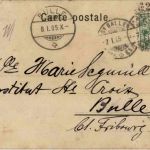 BULLE
8.I.05.X-
Carte postale
ST GALLEN
7.I.05
Mlle Marie Schmid
Institut Ste Croix
Bulle
Ct. Fribourg